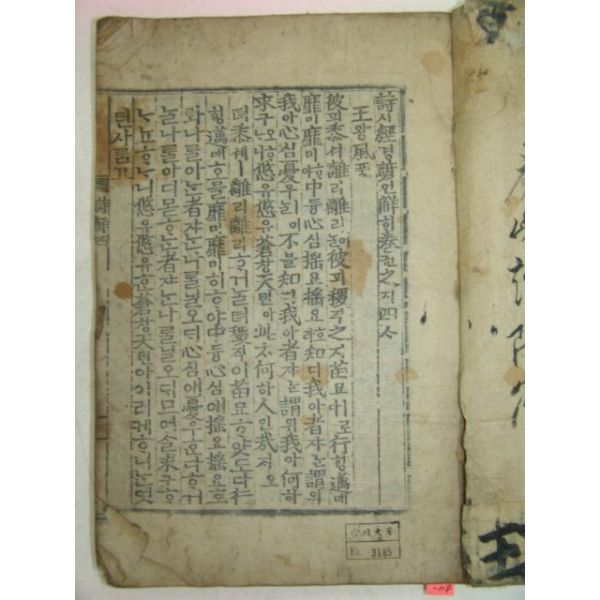 詩시經경諺언解ᄒᆡ卷권之지四ᄉᆞ
王왕風풍
彼피黍셔離리離리어ᄂᆞᆯ彼피稷직之지苗묘ㅣ로다行ᄒᆡᆼ邁매
靡미靡미ᄒᆞ야中듕心심搖요搖요호라知디我아者쟈ᄂᆞᆫ謂위
我아心심憂우ㅣ어ᄂᆞᆯ不블知디我아者쟈ᄂᆞᆫ謂위我아何하
求구오ᄒᆞᄂᆞ니悠유悠유蒼창天텬아此ᄎᆞ何하人인哉ᄌᆡ오
뎌黍셔ㅣ離리離리ᄒᆞ거ᄂᆞᆯ뎌稷직이苗묘ᄒᆞ얏도다行
ᄒᆡᆼ邁매호ᄆᆞᆯ靡미靡미히ᄒᆞ야中듕心심애搖요搖요호
라나ᄅᆞᆯ아ᄂᆞᆫ者쟈ᄂᆞᆫ나ᄅᆞᆯ닐오ᄃᆡ心심애憂우ᄒᆞᆫ다ᄒᆞ거
ᄂᆞᆯ나ᄅᆞᆯ아디몯ᄒᆞᄂᆞᆫ者쟈ᄂᆞᆫ나ᄅᆞᆯ닐오ᄃᆡ므어슬求구ᄒᆞ
ᄂᆞ뇨ᄒᆞᄂᆞ니悠유悠유ᄒᆞᆫ蒼창天텬아이러케ᄒᆞ니ᄂᆞᆫ엇
던사ᄅᆞᆷ고
詩解四
3185